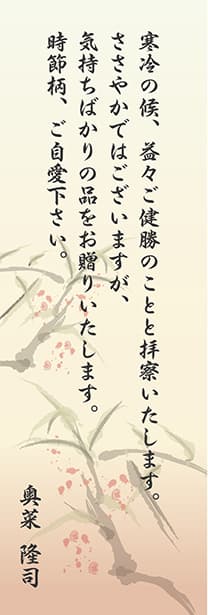 寒冷の候、益々ご健勝のことと拝察いたします。
ささやかではございますが、
気持ちばかりの品をお贈りいたします。
時節柄、ご自愛下さい。
奥菜 隆司